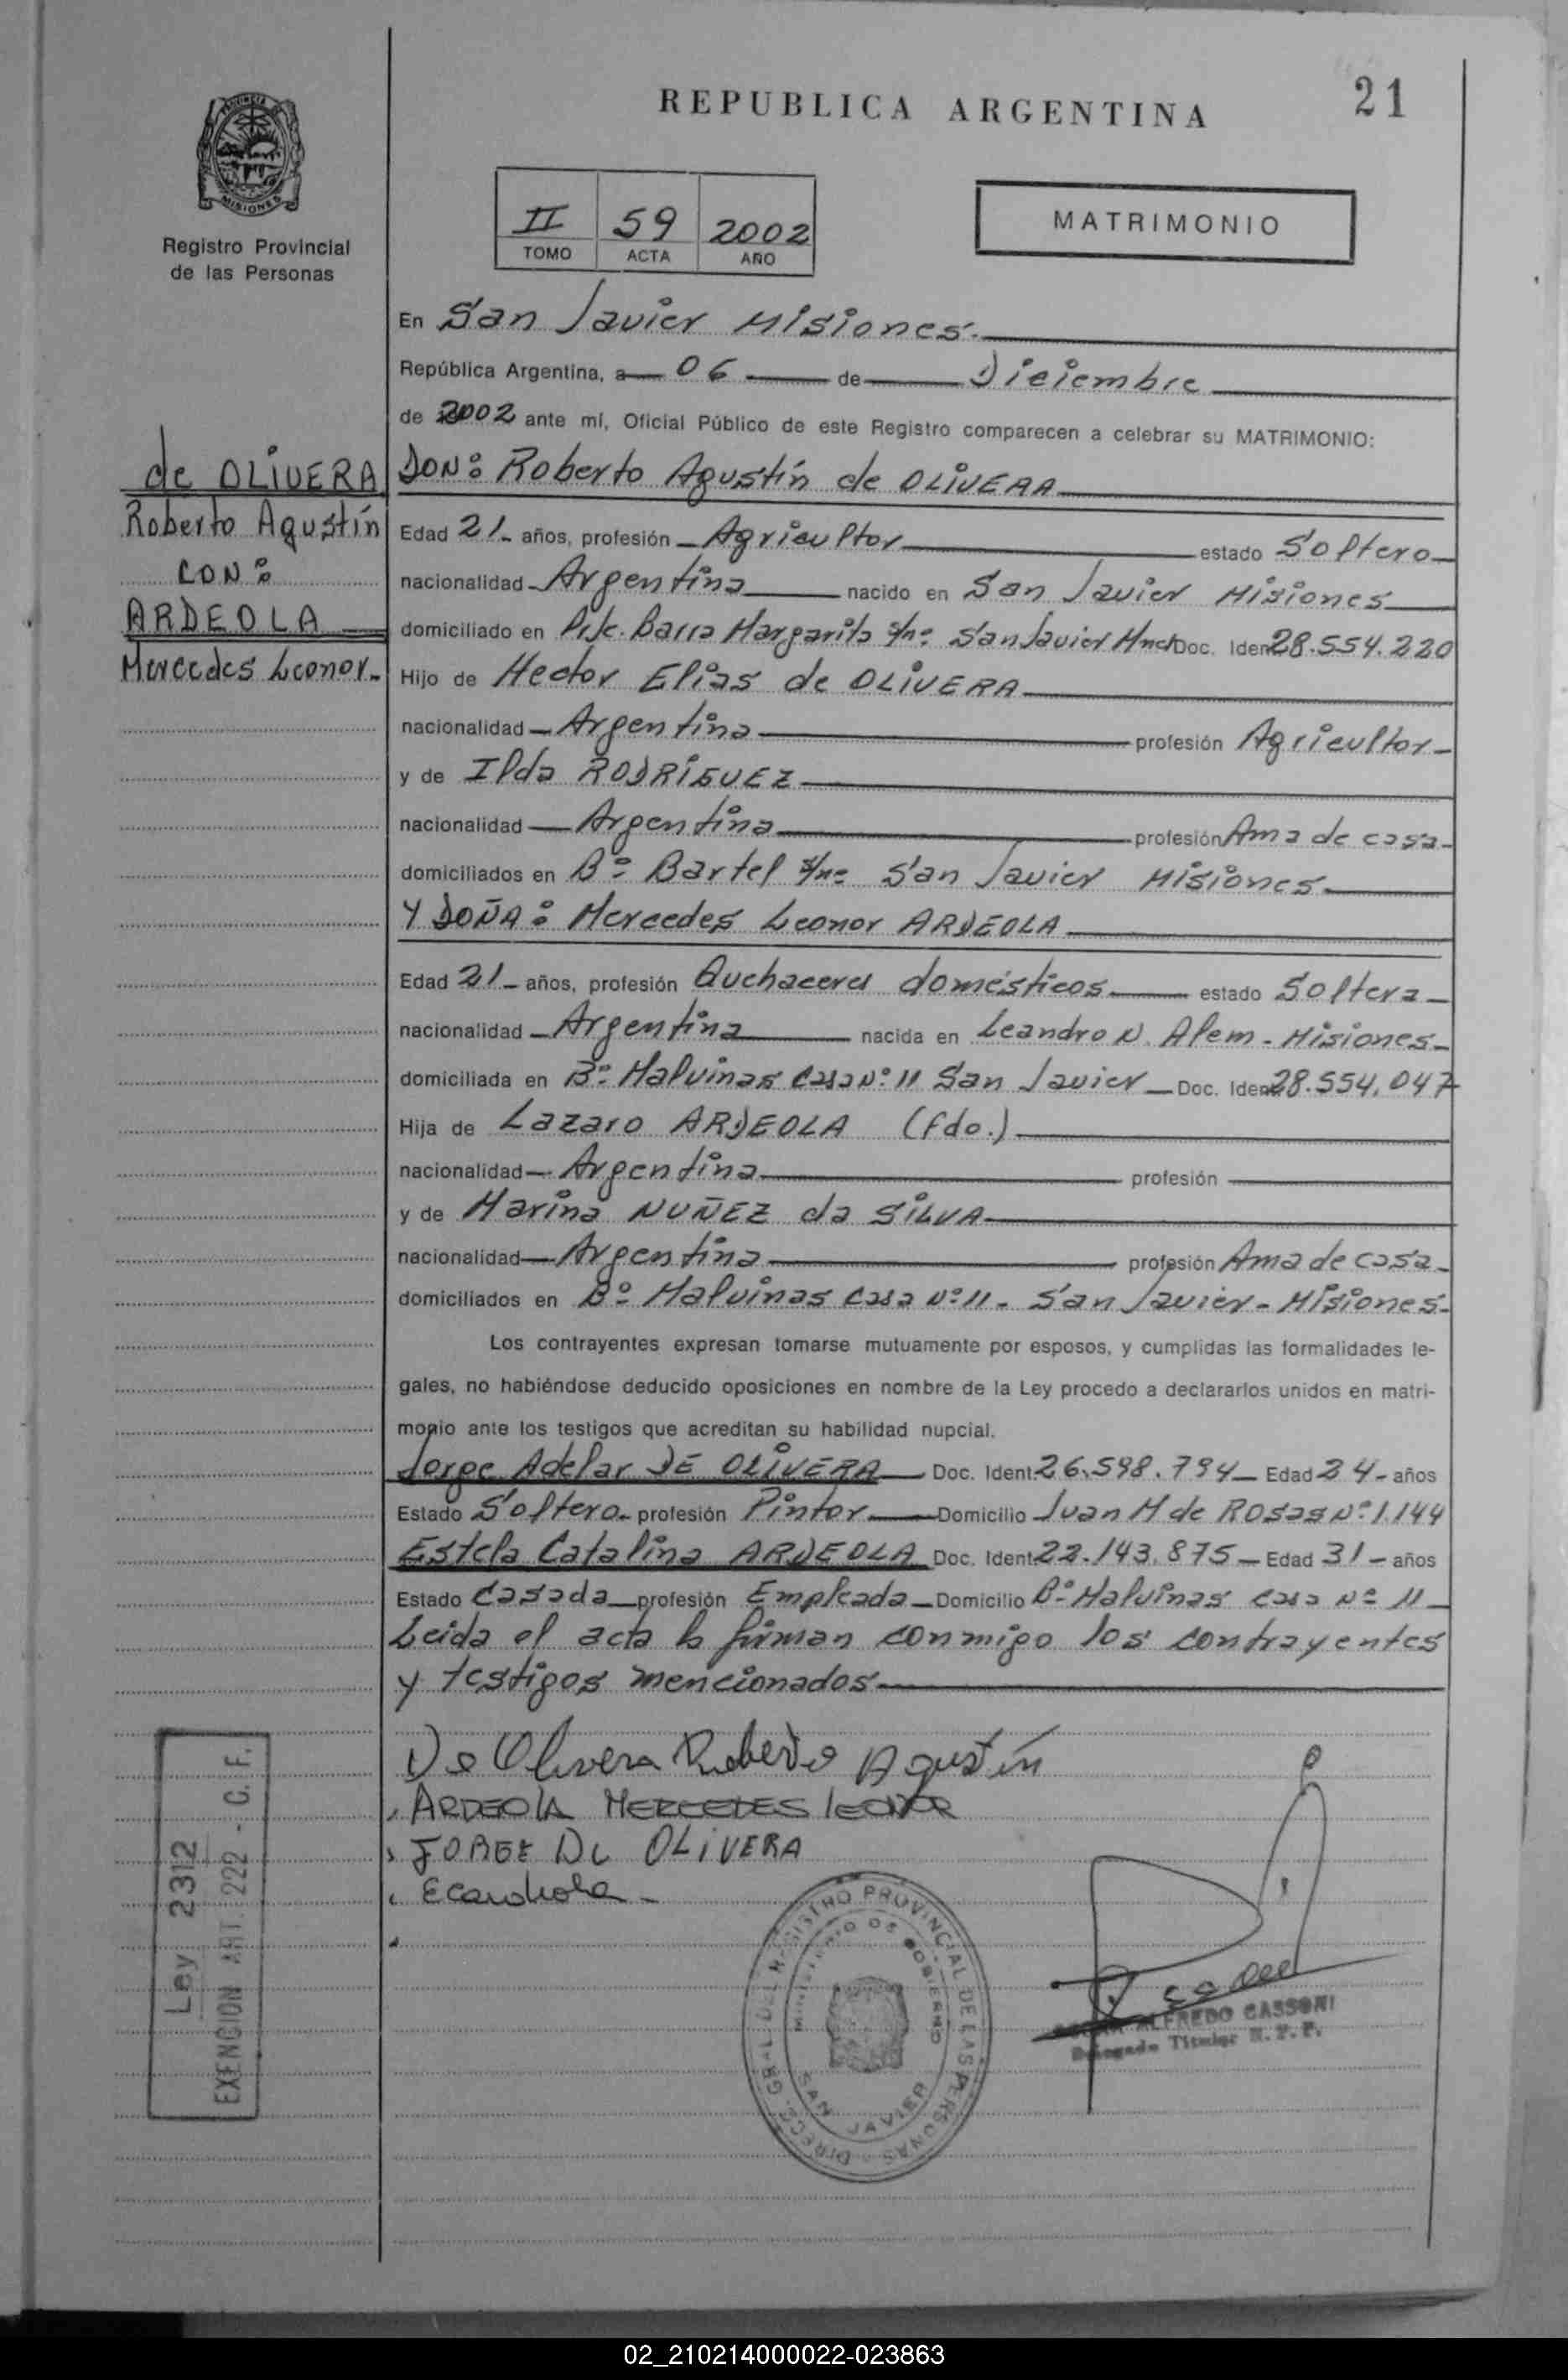 REPUBLICA ARGENTINA
21
PROVINCIA DE MISIONES
Registro Provincial
de las Personas
II 59 2002
TOMO ACTA AÑO
MATRIMONIO
En San Javier Misiones.
República Argentina, a 06 de Diciembre
de 2002 ante mí, Oficial Público de este Registro comparecen a celebrar su MATRIMONIO:
de OLIVERA
Roberto Agustín
CON:
ARDEOLA
Mercedes Leonor.
DON: Roberto Agustín de OLIVERA
Edad 21 años, profesión Agricultor estado Soltero
nacionalidad Argentina nacido en San Javier Misiones
domiciliado en Barra Margarita s/nº San Javier Doc. Iden 28.554.220
Hijo de Hector Elias de OLIVERA
nacionalidad Argentina profesión Agricultor
y de Ilda RODRÍGUEZ
nacionalidad Argentina profesión Ama de casa
domiciliados en Bº Bartel s/nº San Javier Misiones
Y DOÑA: Mercedes Leonor ARDEOLA
Edad 21 años, profesión Quehaceres domésticos estado Soltera
nacionalidad Argentina nacida en Leandro N. Alem - Misiones
domiciliada en Bº Malvinas Casa Nº 11 San Javier Doc. Iden 28.554.047
Hija de Lazaro ARDEOLA (fdo.)
nacionalidad Argentina profesión
y de Marina NUÑEZ da SILVA
nacionalidad Argentina profesión Ama de casa
domiciliados en Bº Malvinas Casa Nº 11 - San Javier - Misiones
Los contrayentes expresan tomarse mutuamente por esposos, y cumplidas las formalidades le-
gales, no habiéndose deducido oposiciones en nombre de la Ley procedo a declararlos unidos en matri-
monio ante los testigos que acreditan su habilidad nupcial.
Jorge Adelar DE OLIVERA Doc. Ident. 26.598.794 Edad 24 años
Estado Soltero profesión Pintor Domicilio Juan M de ROSAS Nº 1.144
Estela Catalina ARDEOLA Doc. Ident. 22.143.875 Edad 31 años
Estado Casada profesión Empleada Domicilio Bº Malvinas Casa Nº 11
Leida el acta la firman conmigo los contrayentes
y testigos mencionados
De Olivera Roberto Agustín
ARDEOLA MERCEDES LEONOR
JORGE De OLIVERA
Ley 2312
EXENCION ART. 222 - C. F.
DIREC. GRAL. DEL REGISTRO PROVINCIAL DE LAS PERSONAS
MINISTERIO DE GOBIERNO
SAN JAVIER
ALFREDO CASSONI
Delegado Titular R. P. P.
02_210214000022-023863